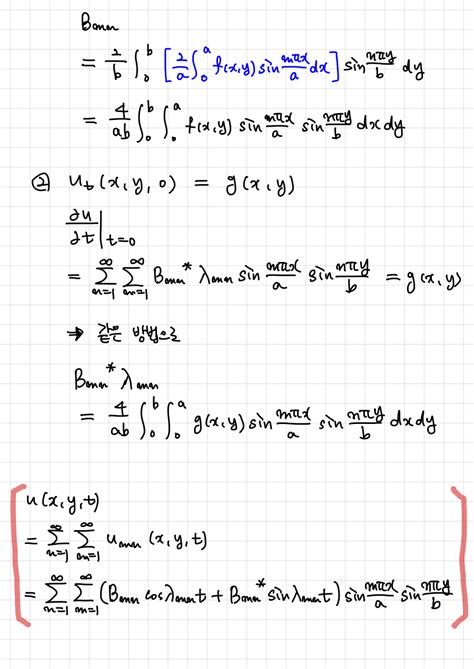 Bmn
= 2/b ∫₀ᵇ [2/a ∫₀ᵃ f(x,y) sin mπx/a dx] sin nπy/b dy
= 4/ab ∫₀ᵇ ∫₀ᵃ f(x,y) sin mπx/a sin nπy/b dx dy
② uₜ(x, y, 0) = g(x, y)
∂u/∂t |t=0
= ∞Σn=1 ∞Σm=1 Bmn* λmn sin mπx/a sin nπy/b = g(x,y)
→ 같은 방법으로
Bmn* λmn
= 4/ab ∫₀ᵇ ∫₀ᵃ g(x,y) sin mπx/a sin nπy/b dx dy
u(x,y,t)
= ∞Σn=1 ∞Σm=1 umn (x,y,t)
= ∞Σn=1 ∞Σm=1 (Bmn cos λmn t + Bmn* sin λmn t) sin mπx/a sin nπy/b